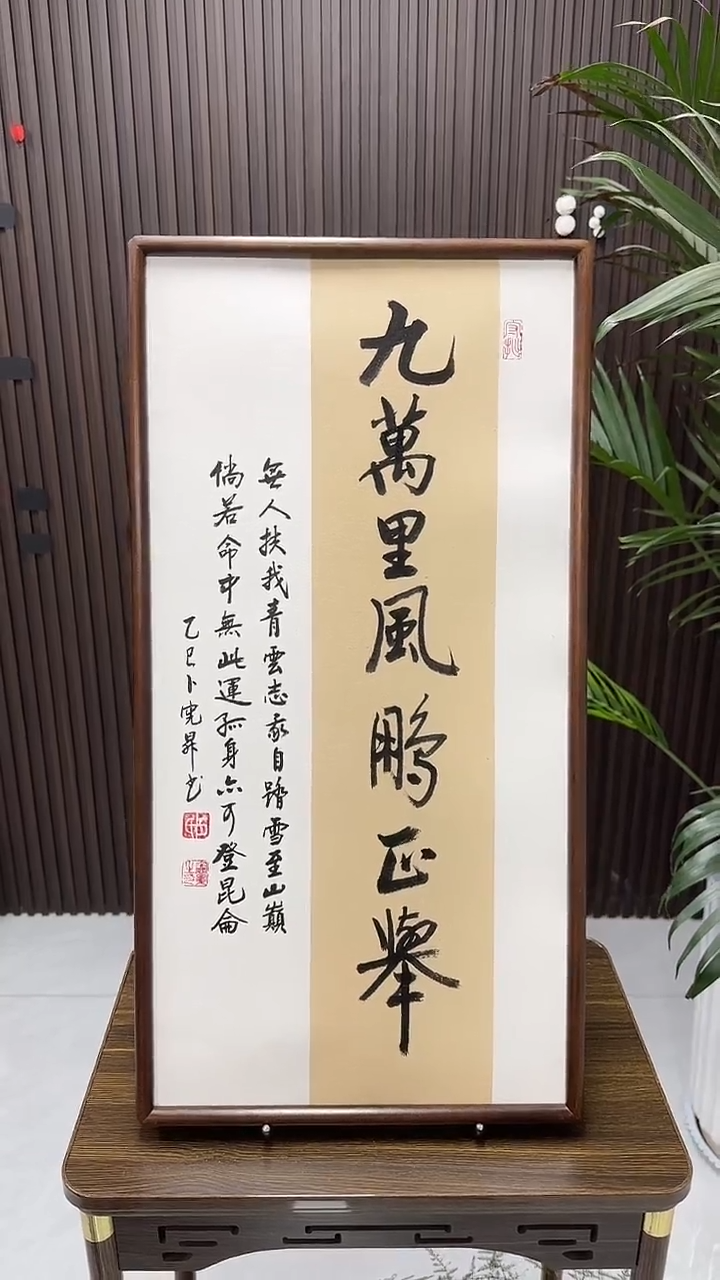 九萬里風鵬正舉
無人扶我青雲志我自踏雪至山巔
倘若命中無此運孤身亦可登昆侖
乙巳卜憲昇书